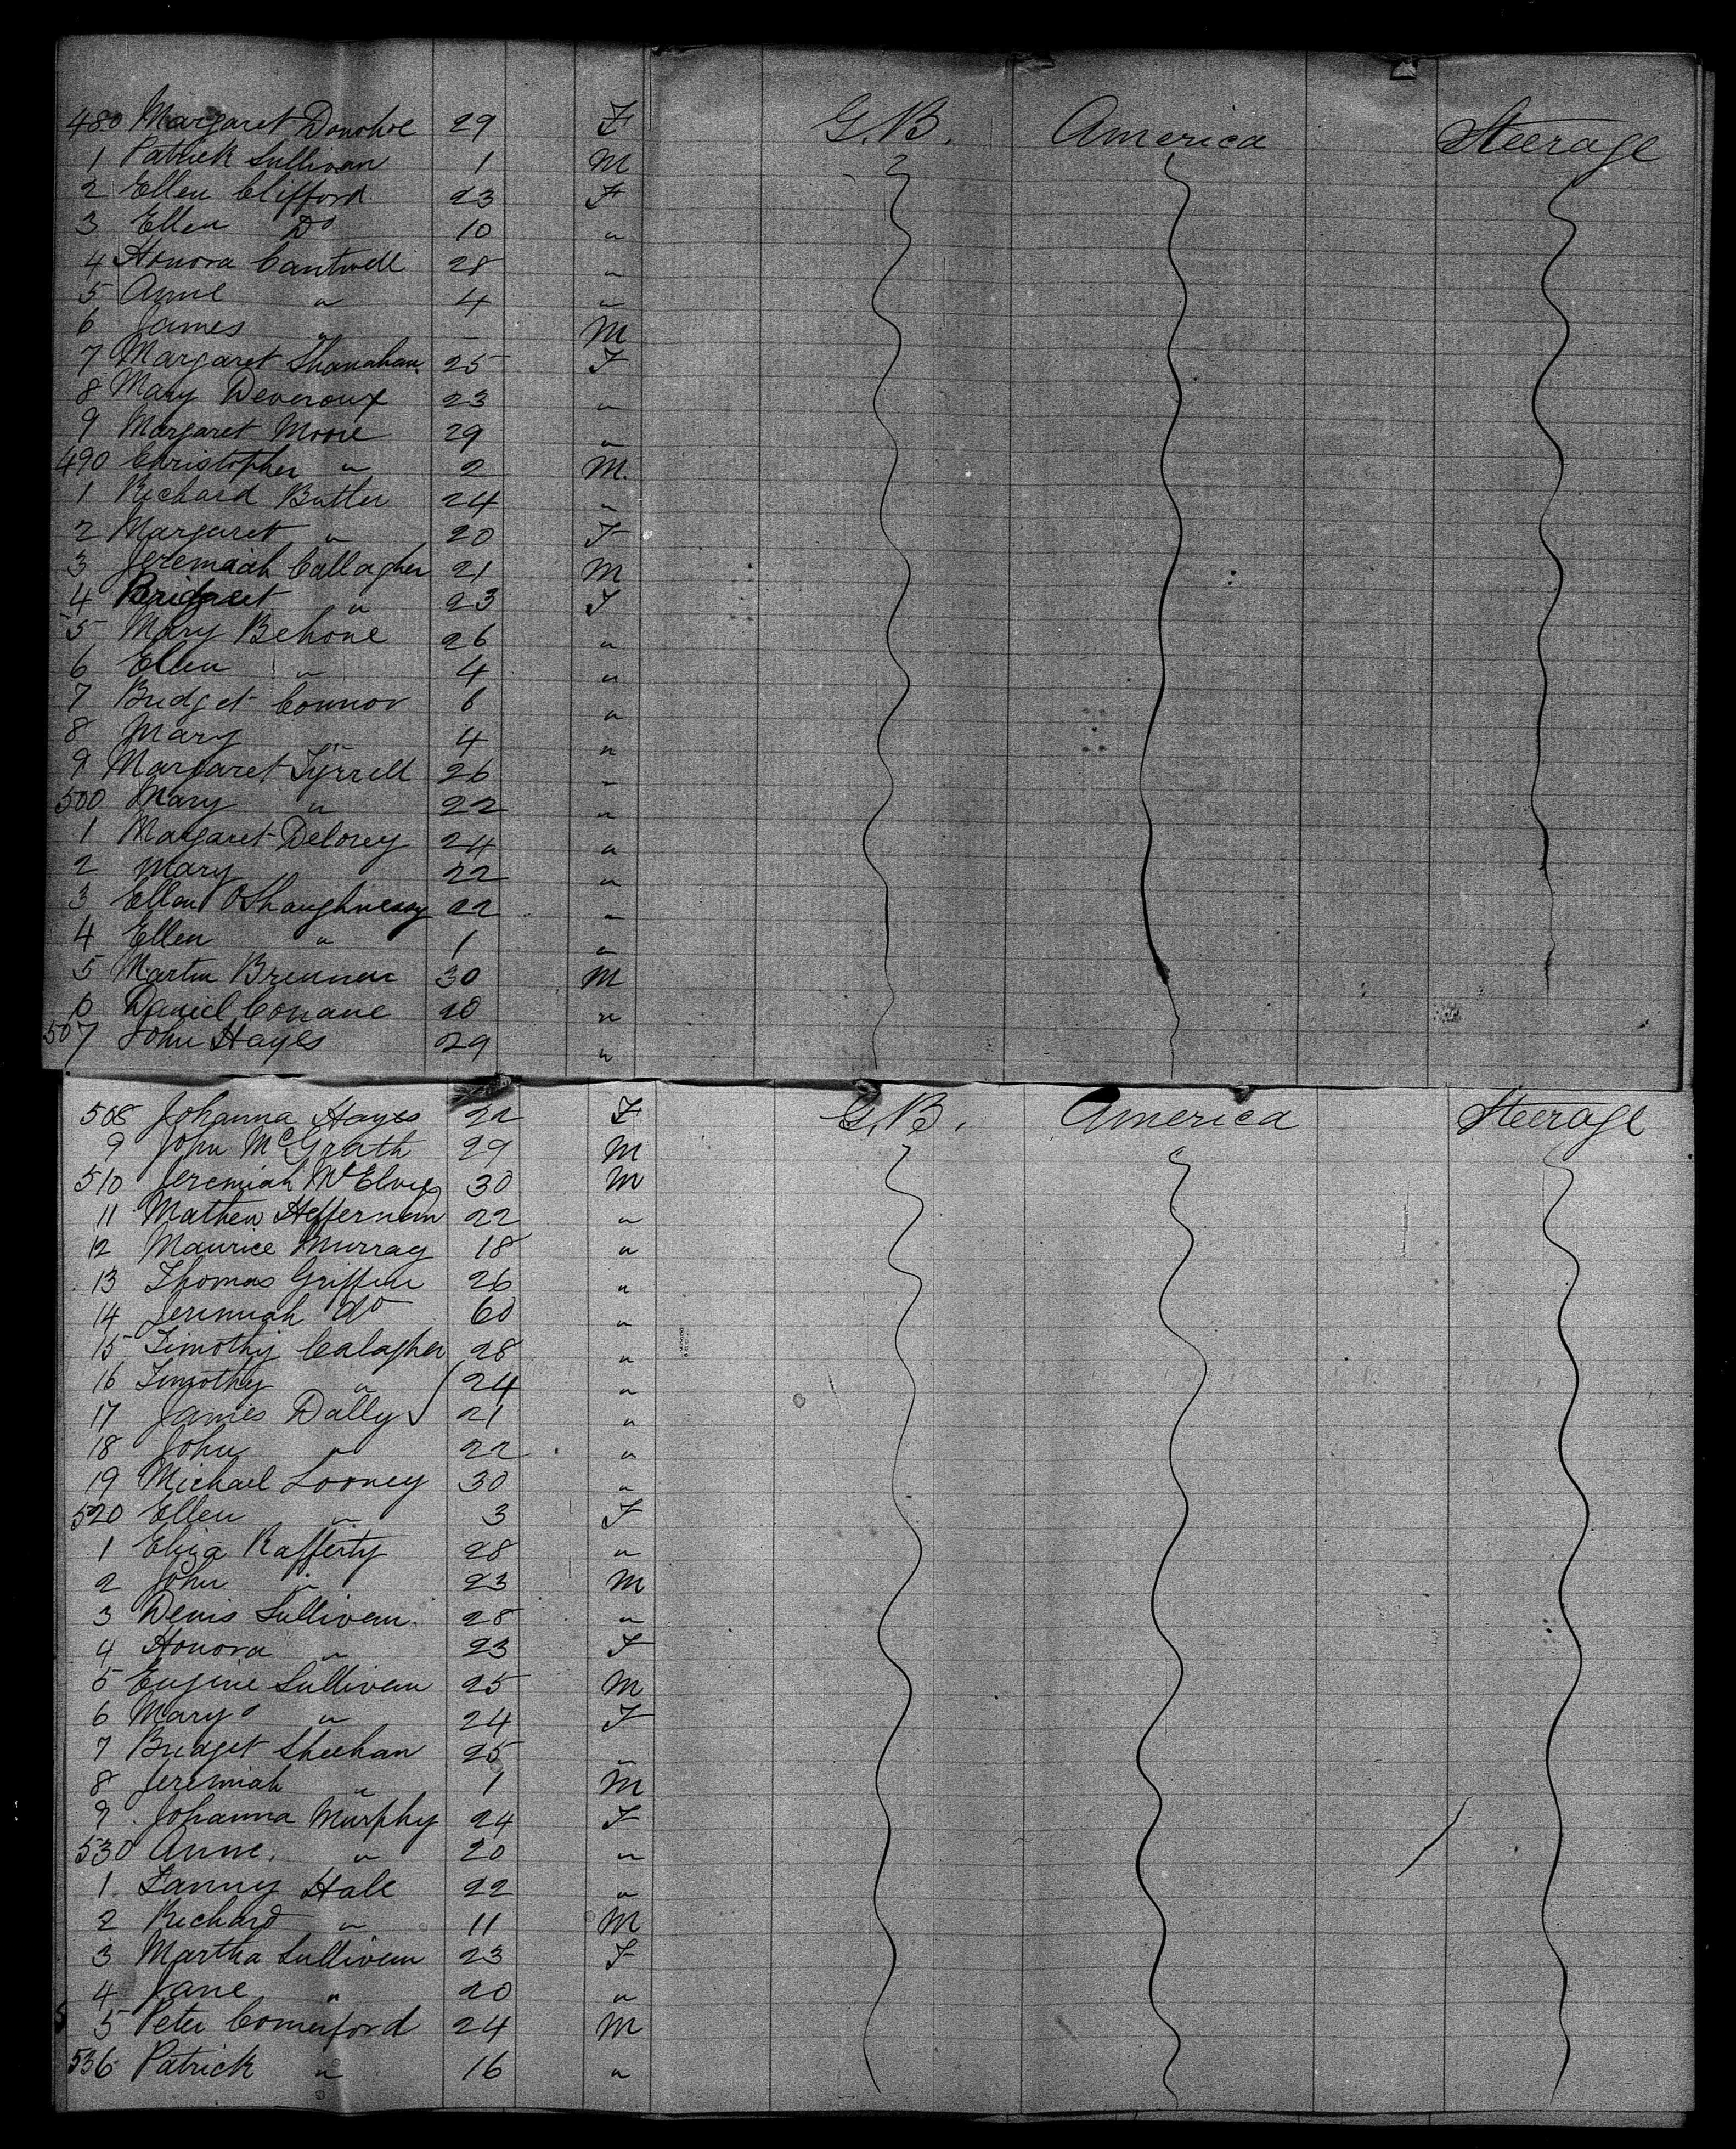 480 Margaret Donohoe 29 F G.B. America Steerage
1 Patrick Sullivan 1 M
2 Ellen Clifford 23 F
3 Ellen Do 10 "
4 Honora Cantwell 28 "
5 Anne " 4 "
6 James " - M
7 Margaret Shanahan 25 F
8 Mary Deveroux 23 "
9 Margaret Moore 29 "
490 Christopher " 2 M.
1 Richard Butler 24 "
2 Margaret " 20 F
3 Jeremiah Callagher 21 M
4 Bridget " 23 F
5 Mary Behone 26 "
6 Ellen " 4 "
7 Bridget Connor 6 "
8 Mary " 4 "
9 Margaret Tyrrell 26 "
500 Mary " 22 "
1 Margaret Delorey 24 "
2 Mary 22 "
3 Ellen O'Shaughnessy 22 "
4 Ellen " 1 "
5 Martin Brennan 30 M
6 Daniel Conane 20 "
507 John Hayes 29 "
508 Johanna Hayes 22 F G.B. America Steerage
9 John McGrath 29 M
510 Jeremiah 30 M
11 Mathew Heffernan 22 "
12 Maurice Murray 18 "
13 Thomas Griffin 26 "
14 Jeremiah Do 60 "
15 Timothy Calagher 28 "
16 Timothy " 24 "
17 James Dally 21 "
18 John " 22 "
19 Michael Looney 30 "
520 Ellen " 3 F
1 Eliza Rafferty 28 "
2 John " 23 M
3 Denis Sullivan 28 "
4 Honora " 23 F
5 Eugene Sullivan 25 M
6 Mary " 24 F
7 Bridget Sheehan 25 "
8 Jeremiah " 1 M
9 Johanna Murphy 24 F
530 Anne. " 20 "
1 Fanny Hale 22 "
2 Richard " 11 M
3 Martha Sullivan 23 F
4 Jane " 20 "
5 Peter Comerford 24 M
536 Patrick " 16 "